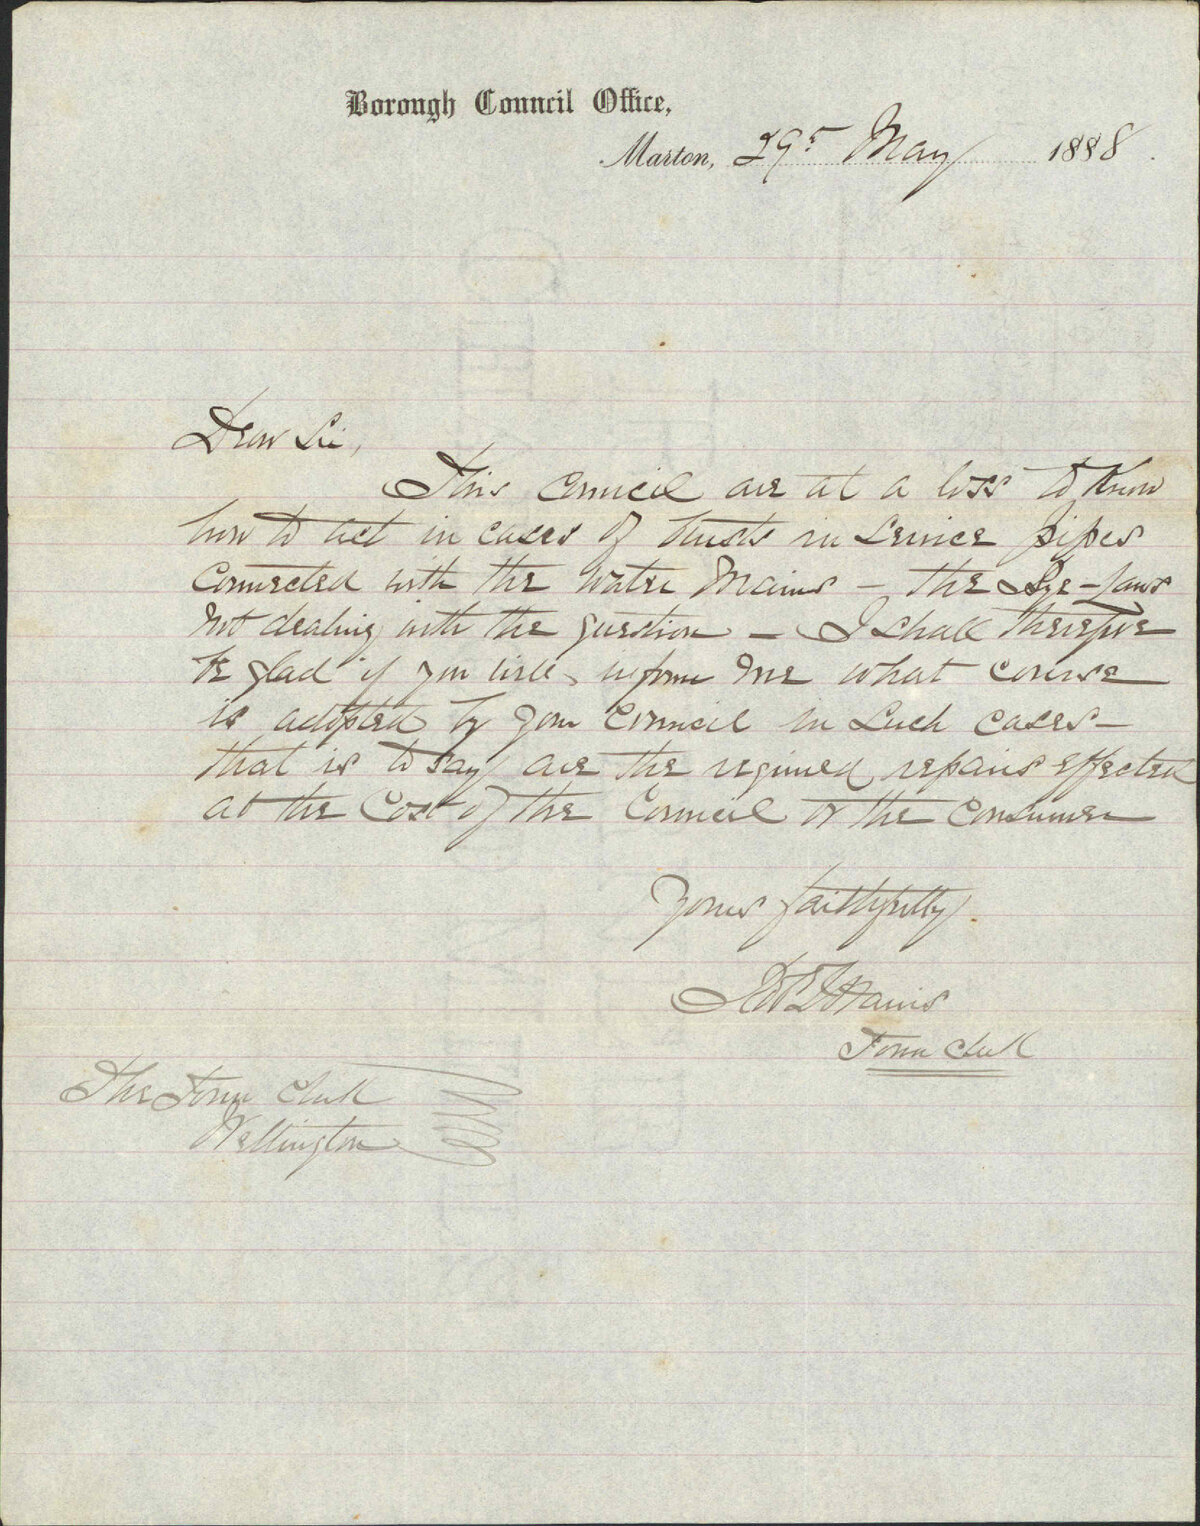 Borough Council Office,
Marton, 29th May 1888.
Dear Sir,
This Council are at a loss to know
how to act in cases of bursts in service pipes
connected with the water mains - the Bye-laws
not dealing with the question - I shall therefore
be glad if you will inform me what course
is adopted by your Council in such cases -
that is to say are the required repairs effected
at the cost of the Council or the consumer
Yours faithfully.
Town Clerk
The Town Clerk
Wellington